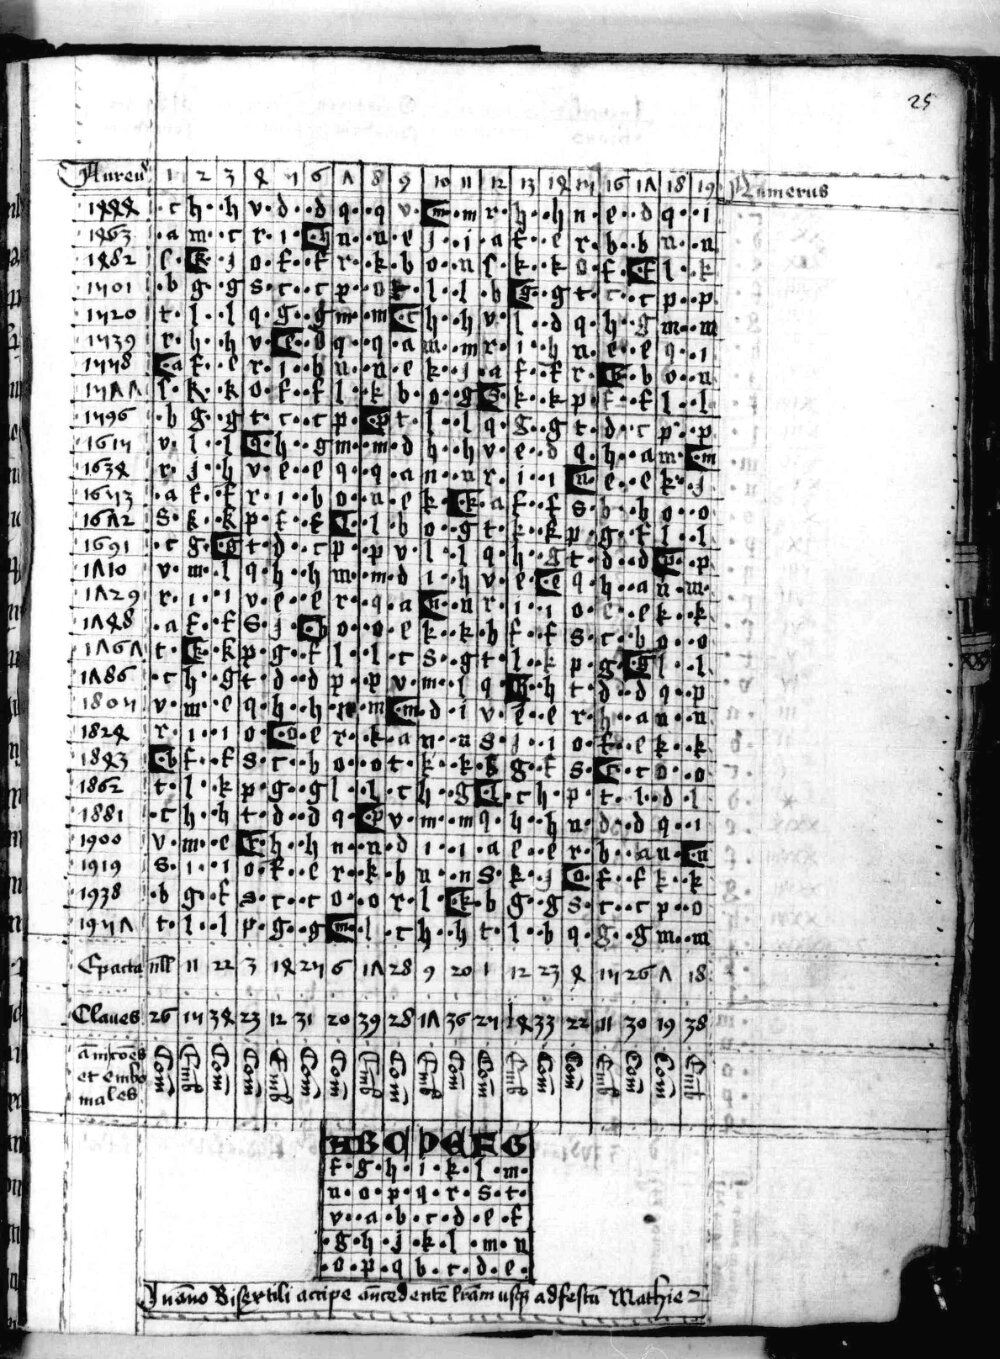 25
Aureus 1 2 3 4 5 6 7 8 9 10 11 12 13 14 15 16 17 18 19 Numerus
1444 c h h v d d q q v m m r h h n e d q i
1463 a m c r i h n n e j i a f e r b b n n
1482 s k j o f f r k b o n s k k o f f l k
1501 b g g s c c p o k l l b g g t c c p p
1520 t l l q g g m m c h h v l d q h g m m
1539 r h h v e d q q a m m r i h n e e q i
1558 a f e r i b n n e k j a f f r k b v n
1577 s k k o f f l k b o g s k k p f f l l
1596 b g g t c c p p t l l q g g t d c p p
1615 v l l q h g m m d h h v e d q h a m m
1634 r j h v e e q q a n n r i i n e e k j
1653 a f f r i b o n e k k a f f s b b o o
1672 s k k p f f l l b o g t k k p g f l l
1691 c g g t d c p p v l l q h g t d d p p
1710 v m l q h h m m d i h v e e q h a n m
1729 r i i v e e r q a n n r i i o e e k k
1748 a f f s j b o o e k k b f f s c b o o
1767 t k k p g f l l c s g t l k p g g l l
1786 c h g t d d p p v m l q h h t d d q p
1805 v m e q h h n m m d i v e e r h a n n
1824 r i i o o e r k a n n s j i o f e k k
1843 b f f s c b o o t k k g f s c o o
1862 t l k p g g l l c h g l c h p t l d l
1881 c h h t d d q p v m m q h h n d d q i
1900 v m e r h h n n d i i a e e r b a n n
1919 s i i o f e r k b n n s k j o f f k k
1938 b g f s c c o o r l k b g g s c c p o
1957 t l l p g g m l c h h t l b q g g m m
Epacta nll 11 22 3 14 25 6 17 28 9 20 1 12 23 4 15 26 7 18
Claues 26 15 34 23 12 31 20 39 28 17 36 25 14 33 22 11 30 19 38
ãmcões
et embo
males
Com Emb Com Com Emb Com Com Emb Com Emb Com Com Emb Com Com Emb Com Com Emb
A B C D E F G
f g h i k l m
n o p q r s t
v a b c d e f
g h j k l m n
o p q b c d e
In ãno Bisextili accipe ãncedentẽ lrãm usq̃ ad festũ Mathie